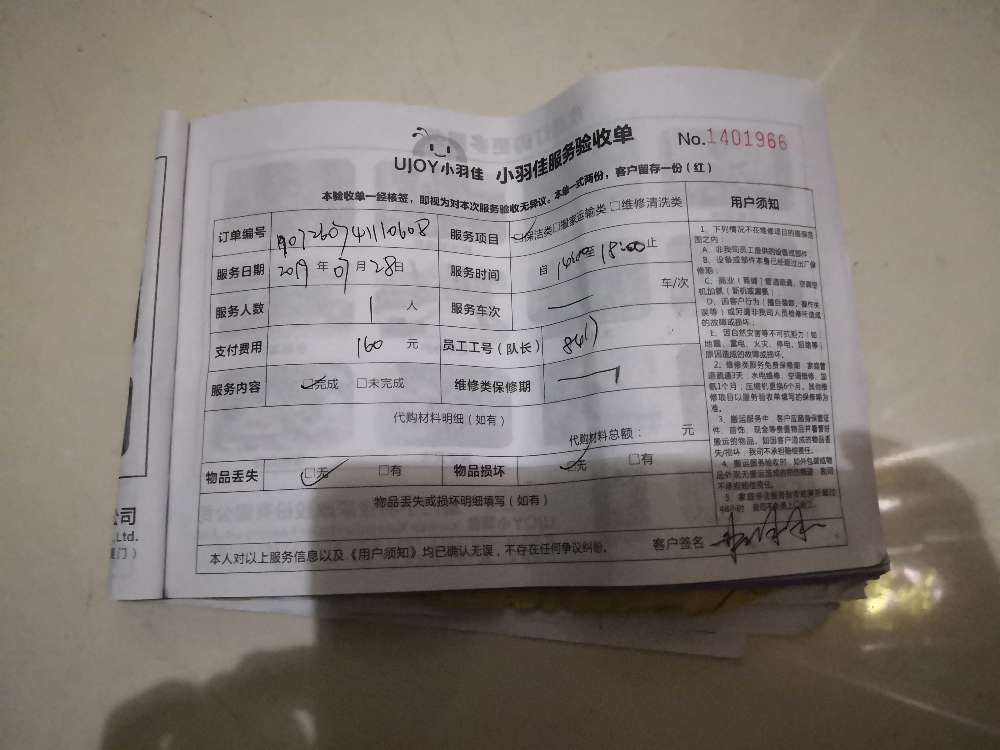 UJOY小羽佳 小羽佳服务验收单 No.1401966
本验收单一经核签，即视为对本次服务验收无异议。本单一式两份，客户留存一份（红）
订单编号 服务项目 保洁类 □搬家运输类 □维修清洗类
服务日期 2019年07月28日 服务时间 自14:00至18:00止
服务人数 1人 服务车次 车/次
支付费用 160元 员工工号（队长） 8417
服务内容 □完成 □未完成 维修类保修期
代购材料明细（如有）
代购材料总额： 元
物品丢失 □无 □有 物品损坏 □无 □有
物品丢失或损坏明细填写（如有）
本人对以上服务信息以及《用户须知》均已确认无误，不存在任何争议纠纷。 客户签名
用户须知
1、下列情况不在维修项目的维保范
围之内：
A、非我司员工提供的设备或部件
B、设备或部件本身已经超过出厂保
修期；
C、商业（商铺）管道疏通、空调空
机加氨（新机或漏氨）
D、因客户行为（擅自装修、操作失
误等）或另请非我司人员检修所造成
的故障或损坏；
E、因自然灾害等不可抗拒力（如
地震、雷电、火灾、停电、
原因造成的故障或损坏。
2、维修类服务免费保修期：家庭管
道疏通3天，水电维修、空调维修、加
氨1个月；压缩机更换6个月。其他维
修项目以服务验收单填写的保修期为
准。
3、搬运服务中，客户应随身保管证
件、首饰、现金等贵重物品并看管好
搬运的物品。如因客户造成的物品丢
失/损坏，我司不承担赔偿责任。
4、搬运服务验收时，如外包装或物
品外观无
不承担赔偿责任。
公司
.,Ltd.
厦门）